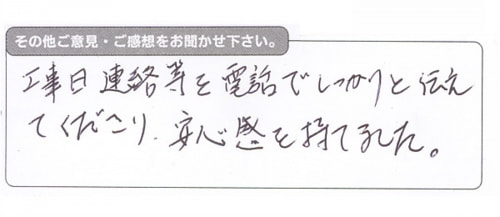 その他ご意見・ご感想をお聞かせ下さい。
工事日連絡等を電話でしっかりと伝え
てくださり、安心感を持てました。